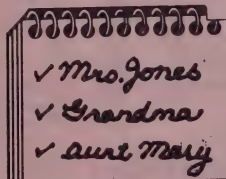 ✓ Mrs. Jones
✓ Grandma
✓ Aunt Mary